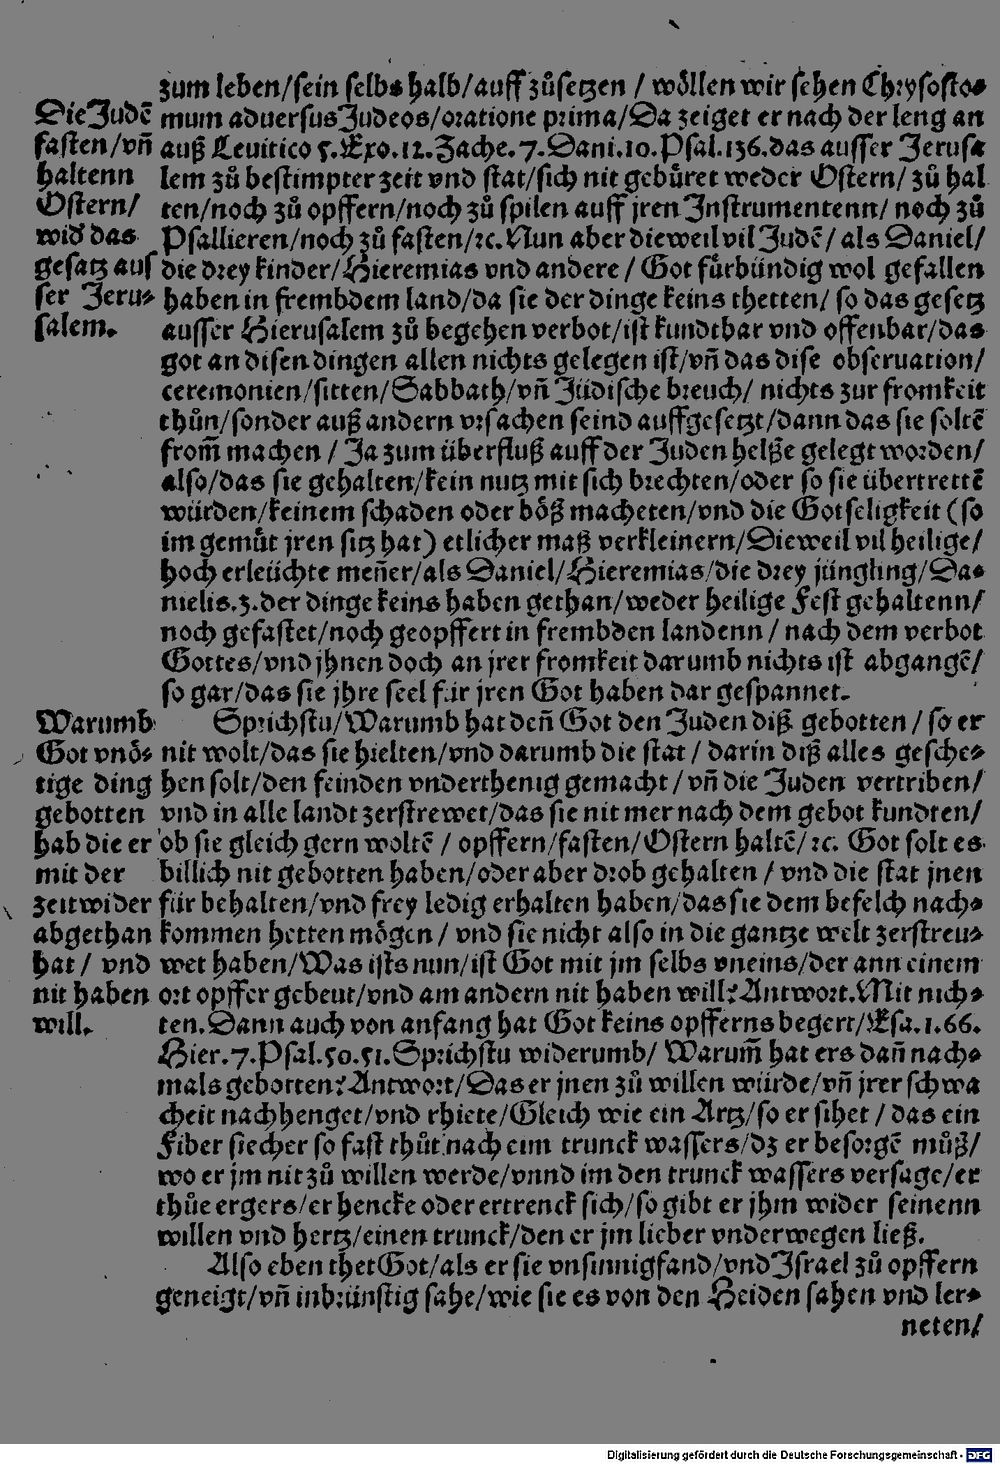 zum leben/sein selbs halb/auff zůsetzen / wöllen wir sehen Chrysosto⸗
mum aduersus Judeos/oratione prima/Da zeiget er nach der leng an
auß Leuitico 5. Exo. 12. Zache. 7. Dani. 10. Psal. 136. das ausser Jerusa
lem zů bestimpter zeit vnd stat/sich nit gebüret weder Ostern/ zů hal
ten/noch zů opffern/noch zů spilen auff jren Instrumentenn/ noch zů
Psallieren/noch zů fasten/ꝛc. Nun aber dieweil vil Judē/ als Daniel/
die drey kinder/Hieremias vnd andere / Got fürbündig wol gefallen
haben in frembdem land/da sie der dinge keins thetten/ so das gesetz
ausser Hierusalem zů begehen verbot/ist kundtbar vnd offenbar/das
got an disen dingen allen nichts gelegen ist/vñ das dise obseruation/
ceremonien/sitten/Sabbath/vñ Jüdische breuch/ nichts zur fromkeit
thůn/sonder auß andern vrsachen seind auffgesetzt/dann das sie soltē
from̄ machen / Ja zum überfluß auff der Juden helße gelegt worden/
also/das sie gehalten/kein nutz mit sich brechten/oder so sie übertrettē
würden/keinem schaden oder böß macheten/vnd die Gotseligkeit (so
im gemüt jren sitz hat) etlicher maß verkleinern/Dieweil vil heilige/
hoch erleüchte meñer/als Daniel/Hieremias/die drey jüngling/Da⸗
nielis. 3. der dinge keins haben gethan/weder heilige Fest gehaltenn/
noch gefastet/noch geopffert in frembden landenn / nach dem verbot
Gottes/vnd jhnen doch an jrer fromkeit darumb nichts ist abgangē/
so gar/das sie jhre seel für jren Got haben dar gespannet.
Sprichstu/Warumb hat deñ Got den Juden diß gebotten / so er
nit wolt/das sie hielten/vnd darumb die stat / darin diß alles gesche⸗
hen solt/den feinden vnderthenig gemacht / vñ die Juden vertriben/
vnd in alle landt zerstrewet/das sie nit mer nach dem gebot kundten/
ob sie gleich gern woltē / opffern/fasten/Ostern haltē/ꝛc. Got solt es
billich nit gebotten haben/oder aber drob gehalten / vnd die stat jnen
für behalten/vnd frey ledig erhalten haben/das sie dem befelch nach⸗
kommen hetten mögen / vnd sie nicht also in die gantze welt zerstreu⸗
wet haben/Was ists nun/ist Got mit jm selbs vneins/der ann einem
ort opffer gebeut/vnd am andern nit haben will? Antwort. Mit nich⸗
ten. Dann auch von anfang hat Got keins opfferns begert/Esa. 1. 66.
Hier. 7. Psal. 50. 51. Sprichstu widerumb/ Warum̄ hat ers dañ nach⸗
mals gebotten? Antwort/Das er jnen zů willen würde/vñ jrer schwa
cheit nachhenget/vnd rhiete/Gleich wie ein Artz/so er sihet / das ein
Fiber siecher so fast thůt nach eim trunck wassers/dz er besorgē můß/
wo er jm nit zů willen werde/vnnd im den trunck wassers versage/er
thůe ergers/er hencke oder ertrenck sich/so gibt er jhm wider seinenn
willen vnd hertz/einen trunck/den er jm lieber vnderwegen ließ.
Also eben thet Got/als er sie vnsinnig fand/vnd Israel zů opffern
geneigt/vñ inbrünstig sahe/wie sie es von den Heiden sahen vnd ler⸗
neten/
Die Judē
fasten/vñ
haltenn
Ostern/
wid das
gesatz aus
ser Jeru⸗
salem.
Warumb
Got vnö⸗
tige ding
gebotten
hab die er
mit der
zeit wider
abgethan
hat / vnd
nit haben
will.
Digitalisierung gefördert durch die Deutsche Forschungsgemeinschaft - DFG